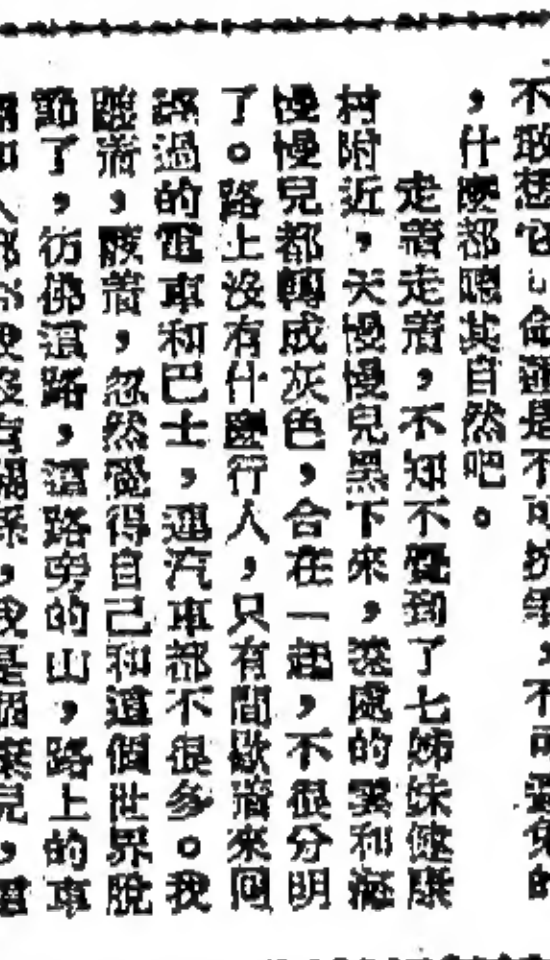 不敢想它。命運是不可抗爭，不可避免的
，什麼都聽其自然吧。
走着走着，不知不覺到了七姊妹健康
村附近，天慢慢兒黑下來，遠處的雲和海
慢慢兒都轉成灰色，合在一起，不很分明
了。路上沒有什麼行人，只有間歇着來回
路過的電車和巴士，連汽車都不很多。我
踱着，踱着，忽然覺得自己和這個世界脫
節了，彷彿這路，這路旁的山，路上的車
，我是個棄兒，